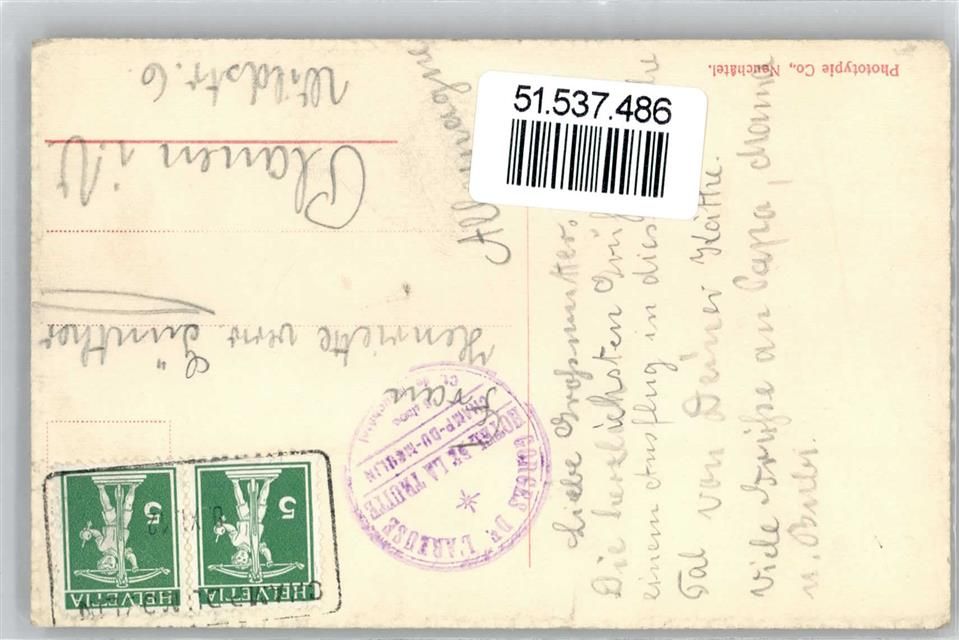 Phototypie Co., Neuchâtel.
51.537.486
Liebe Grossmutter,
Die herzlichsten
einen Ausflug in
Tal von Deiner Käthe.
Viele Grüsse an Papa, Mama
u. Bubi.
Frau
Henriette verw Günther
Plauen i. V
Wildstr. 6
Allemagne
GORGES DE L'AREUSE
HÔTEL DE LA TRUITE
CHAMP-DU-MOULIN
5
5
HELVETIA
HELVETIA